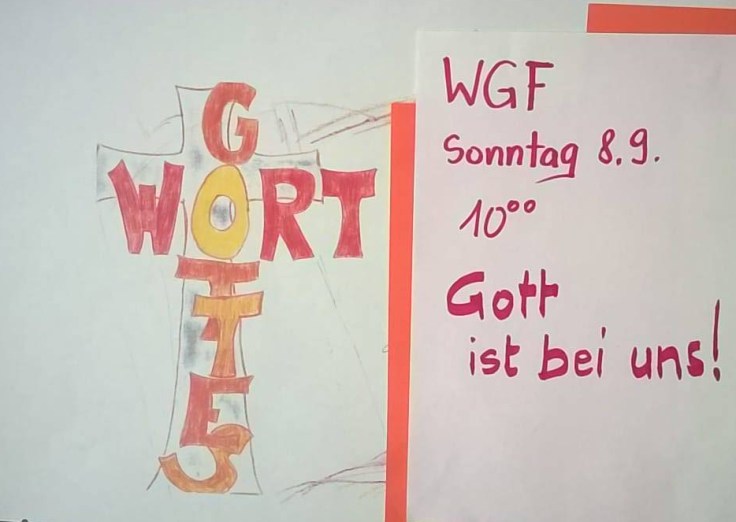 GOTTES
WORT
WGF
Sonntag 8.9.
10°°
Gott
ist bei uns!